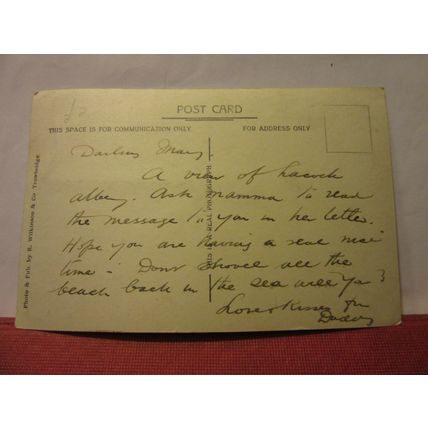 £2
POST CARD
THIS SPACE IS FOR COMMUNICATION ONLY
FOR ADDRESS ONLY
Darling Mary.
A view of Lacock
abbey. Ask mamma to read
the message to you in her letter.
Hope you are having a real nice
time - Dont shovel all the
beach back in the sea will ya?
Love & Kisses fm
Daddy
THIS IS A REAL PHOTOGRAPH
Photo & Pub. by R. Wilkinson & Co Trowbridge